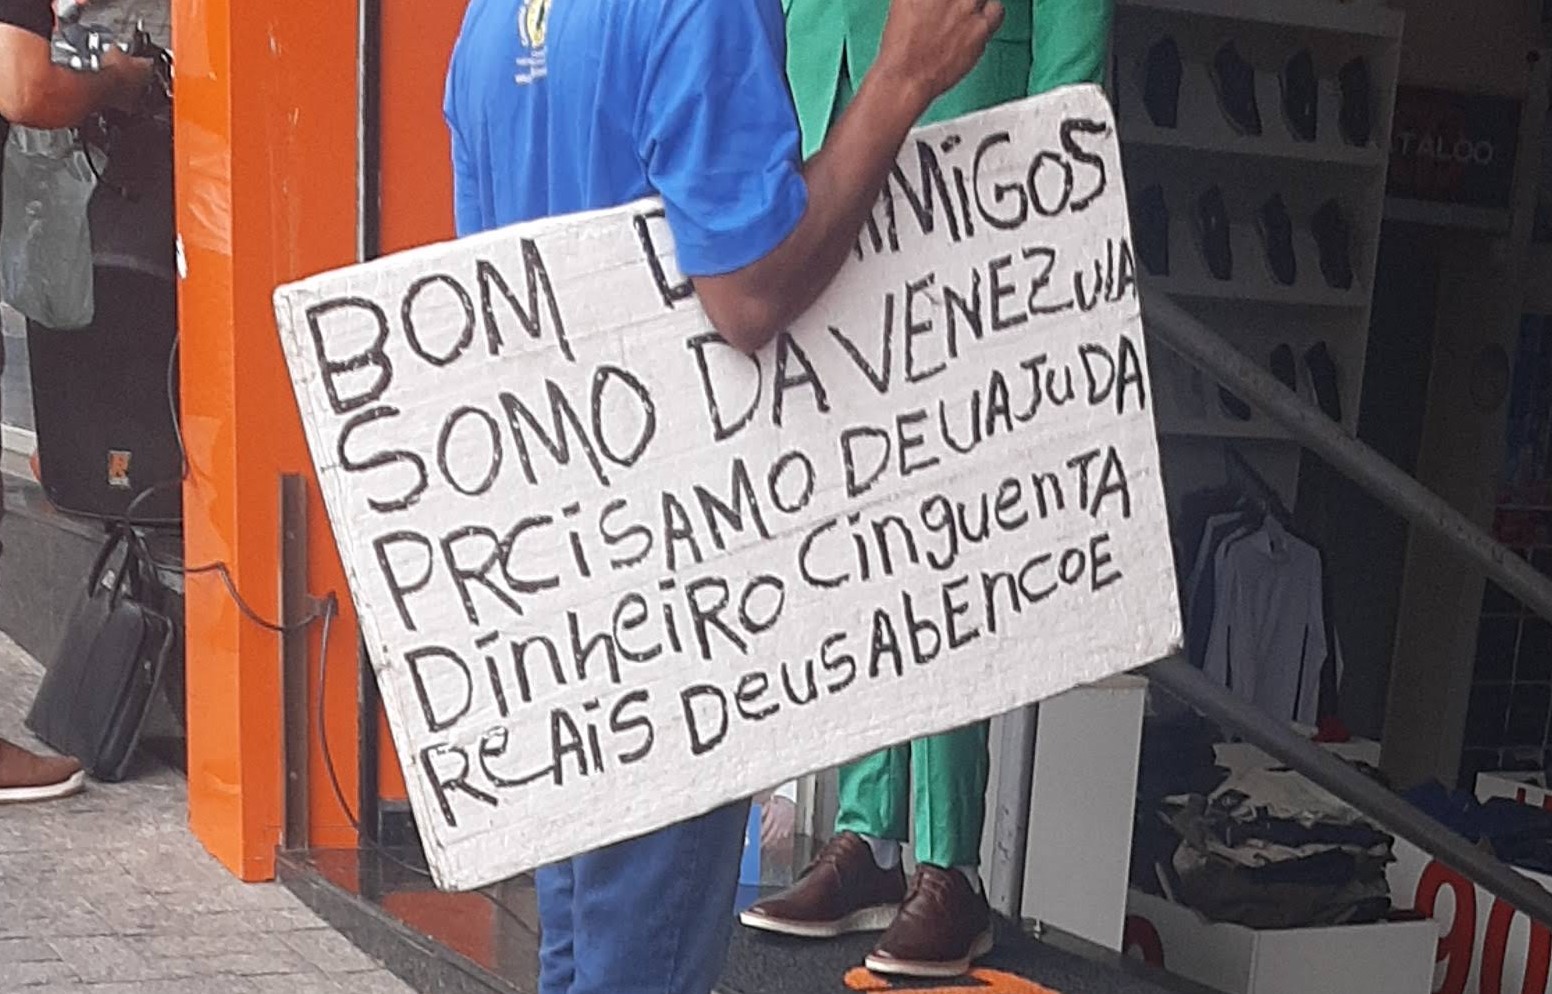 BOM D AMIGOS
SOMO DA VENEZUlA
PRCiSAMO DEUAJuDA
DinheiRO CinguenTA
ReAiS DeuSAbEncoE
TALOO
90